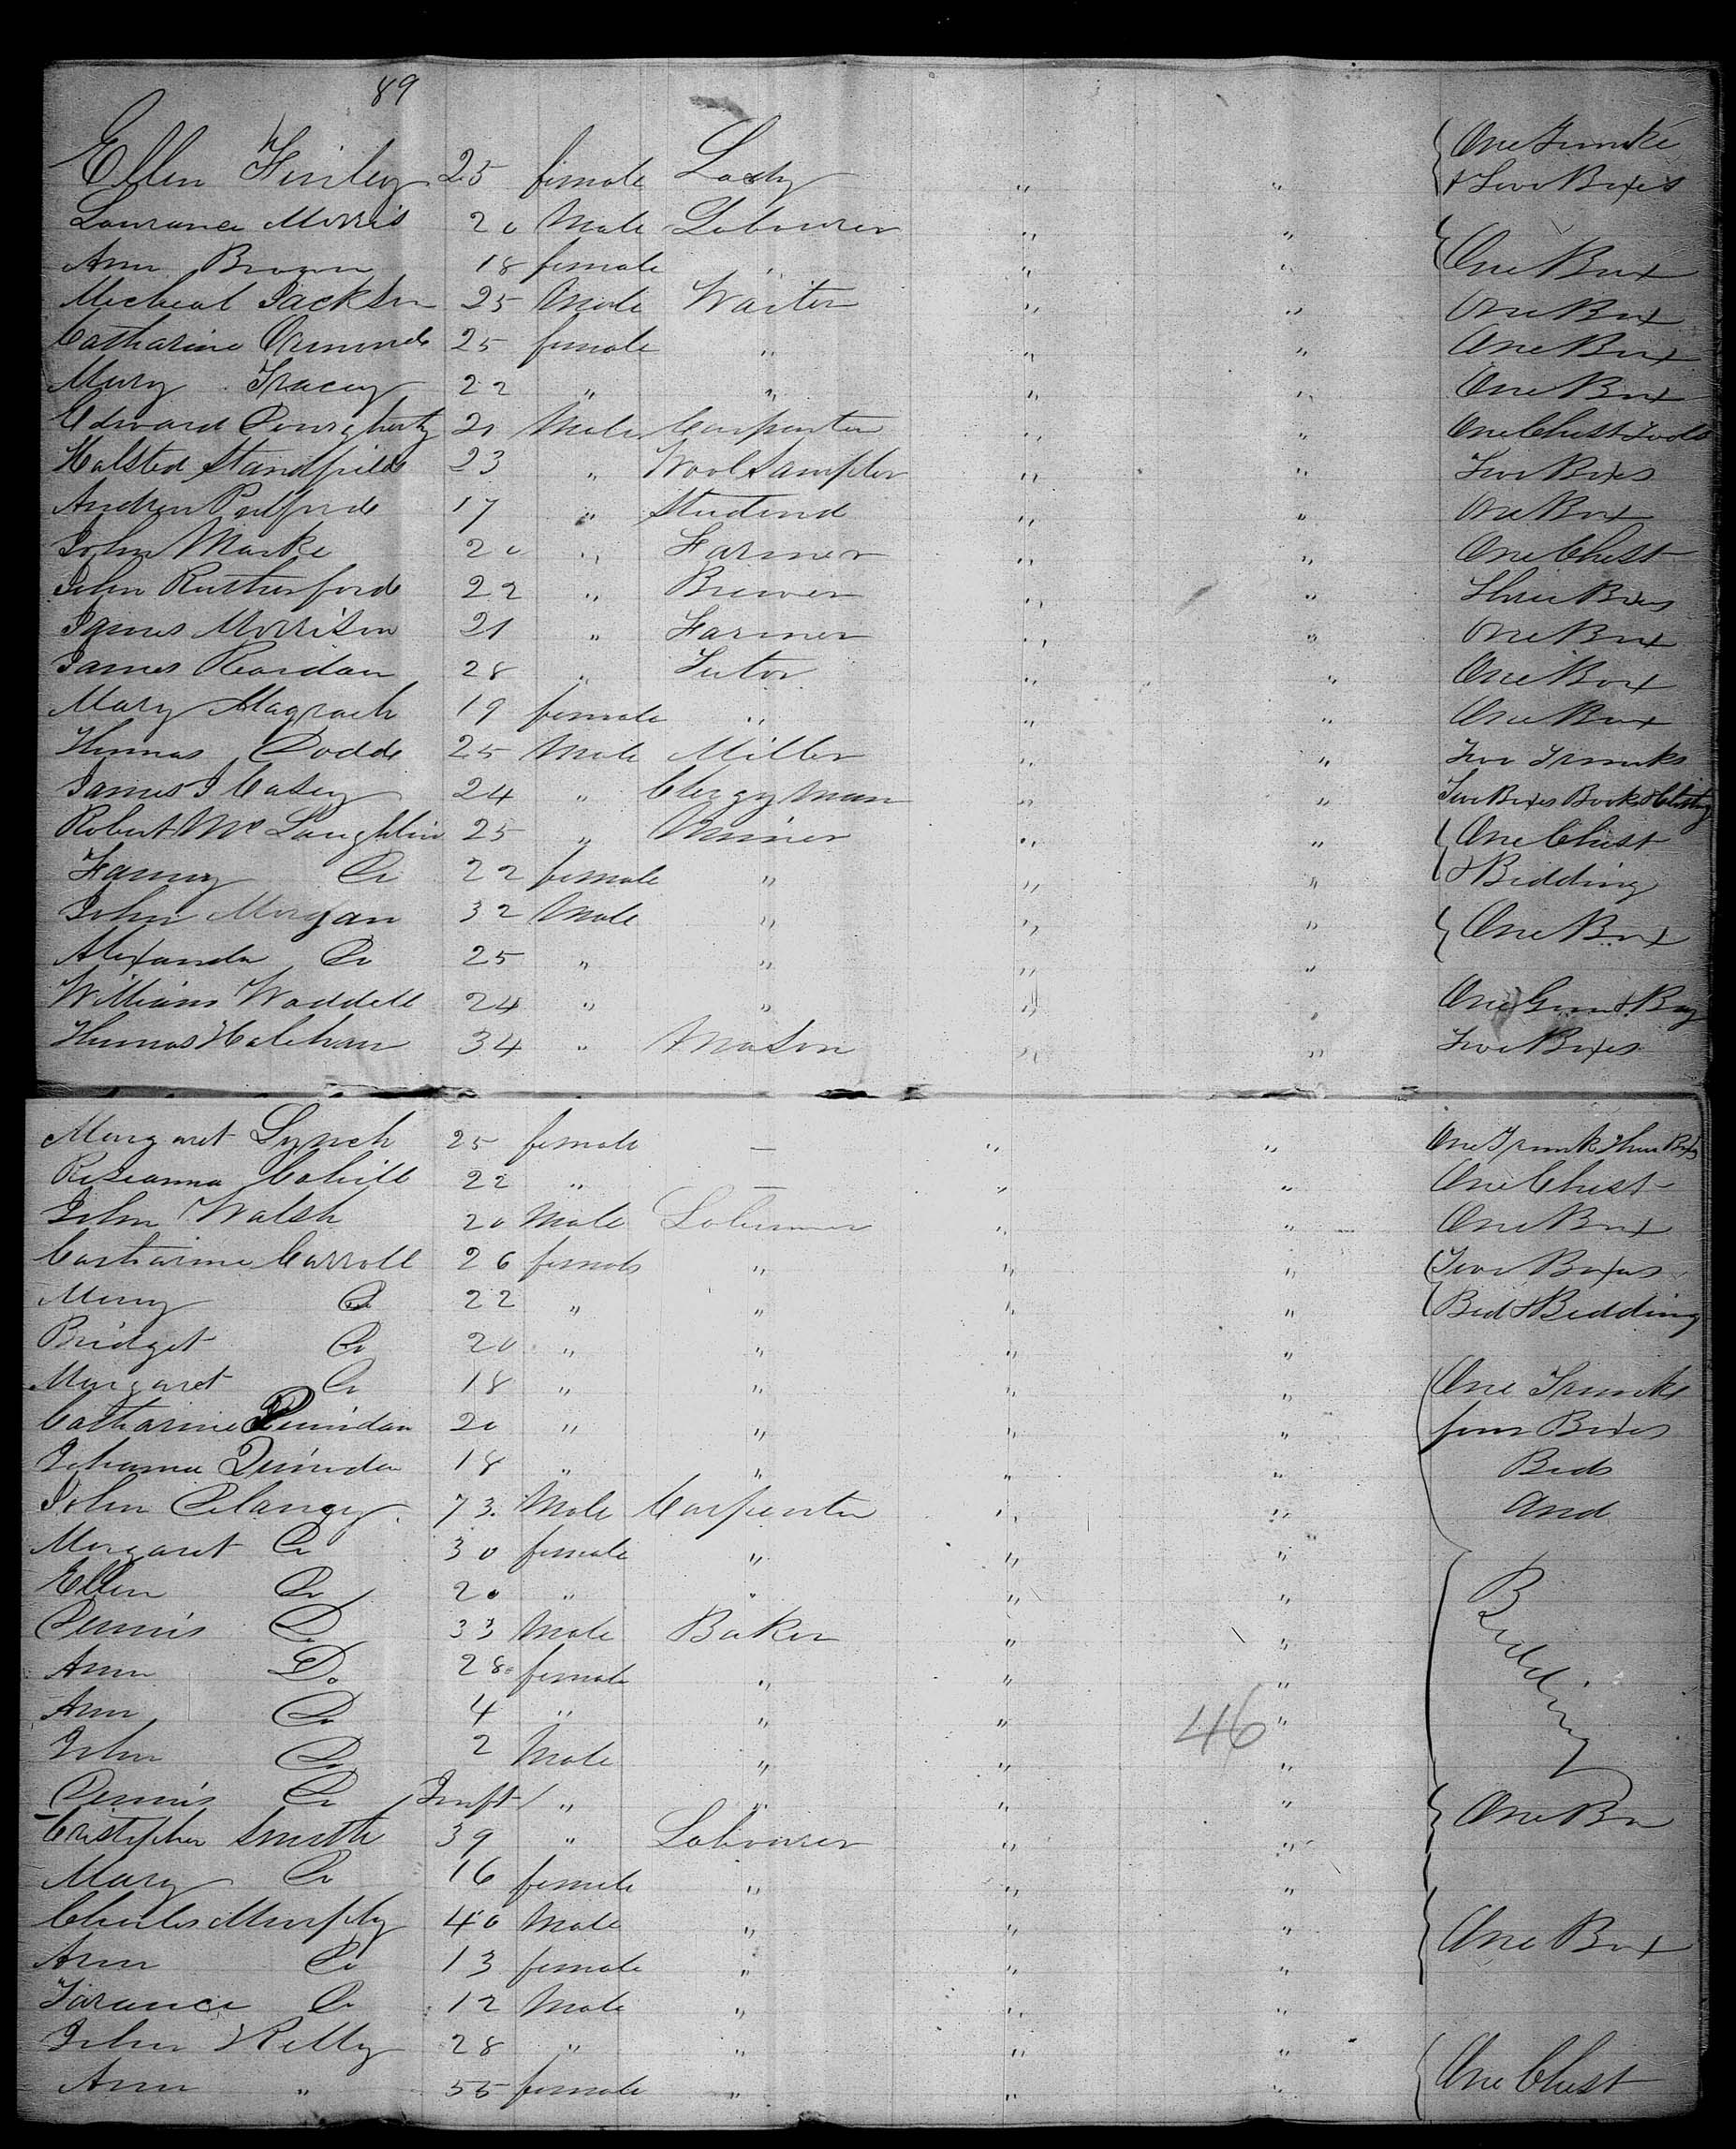 89
Ellen Finley 25 female Lady " " { One Trunke
& Two Boxes
Laurance Morris 20 Male Labourer " " {
Ann Brown 18 female " " " One Box
Micheal Jackson 25 Male Waiter " " One Box
Catharine Ormonde 25 female " " " One Box
Mary Tracey 22 " " " " One Box
Edward Dougherty 21 Male Carpenter " " One Chest Tools
Halsted Standfield 23 " Wool Sampler " " Two Boxes
Andrew Pulforde 17 " Studend " " One Box
John Marke 20 " Farmer " " One Chest
John Rutherforde 22 " Brewer " " Three Boxes
James Morrison 21 " Farmer " " One Box
James Reardan 28 " Tutor " " One Box
Mary Magrach 19 female " " " One Box
Thomas Dodde 25 Male Miller " " Two Trunks
James J Casey 24 " Clergyman " " Two Boxes Books & Clothg
Robert Mc Laughlin 25 " Miner " " { One Chest
Fanny Do 22 female " " " & Bedding
John Morgan 32 Male " " " { One Box
Alexander Do 25 " " " "
William Waddell 24 " " " " One Gun & Bag
Thomas Halehan 34 " Mason " " Two Boxes
Margaret Lynch 25 female — " " One Trunk Three Boxs
Roseanna Cahill 22 " — " " One Chest
John Walsh 20 Male Labourer " " One Box
Catharine Carroll 26 female " " " { Two Boxes
Mary Do 22 " " " " Bed & Bedding
Bridget Do 20 " " " "
Margaret Do 18 " " " " { One Trunke
Catharine Quindan 20 " " " " four Boxes
Johanna Quindan 18 " " " " Beds
John Clancy 73 Male Carpenter " " And
Margaret Do 30 female " " "
Ellen Do 20 " " " " { Bedding
Dennis Do 33 Male Baker " "
Ann Do 28 female " " "
Ann Do 4 " " " 46 "
John Do 2 Male " " "
Dennis Do Inft " " " "
Cristopher Smith 39 " Labourer " " { One Bo
Mary Do 16 female " " "
Charles Murphy 40 Male " " "
Ann Do 13 female " " " { One Box
Tarance Do 12 Male " " "
John Kelly 28 " " " "
Ann " 55 female " " " { One Chest